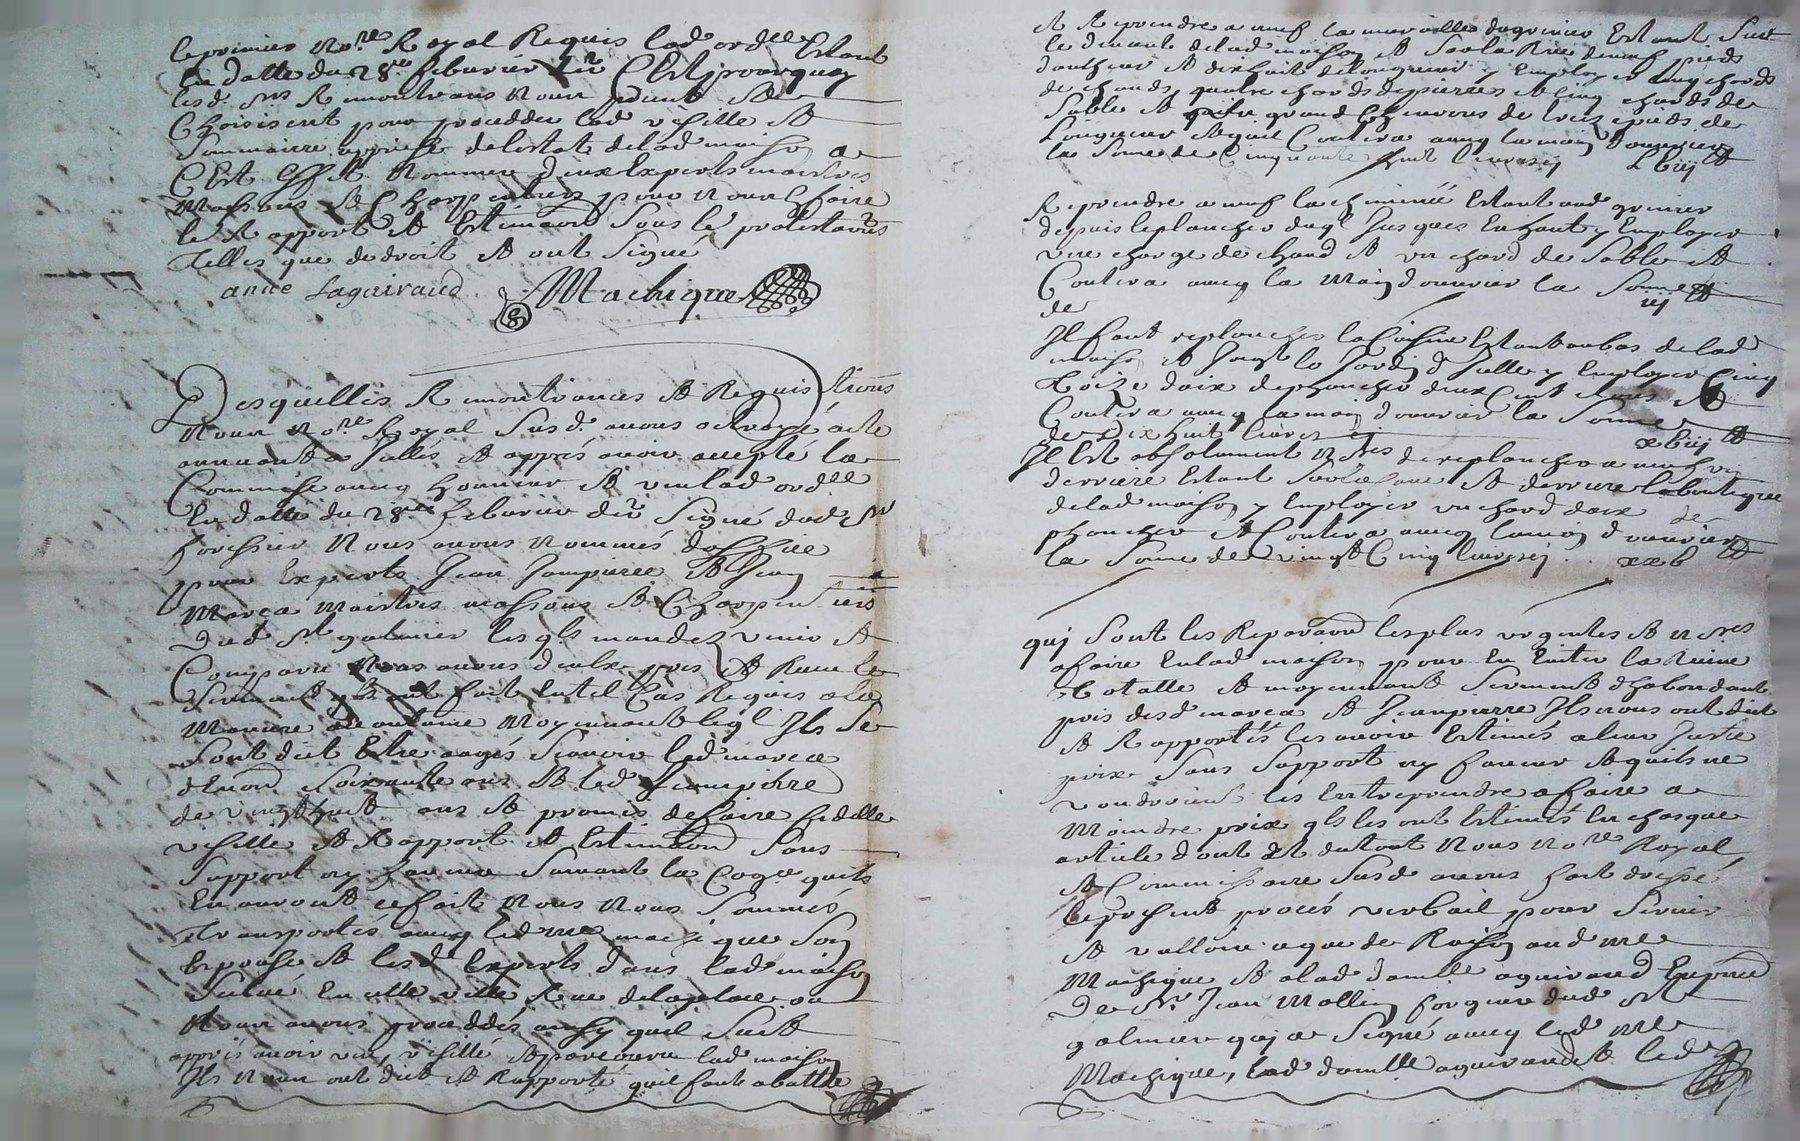 le premier No.re Royal Requis lad. ordce Estant
En datte du 28.e febvrier dr C'Est pourquoy
lesd. srs Remontrans Nous prient et
Choisisent pour procedder lad. visitte et
Sommaire apprise de l'estat de lad. maison
C'Est effet Nommer deux Experts maistres
Massons et Charpentiers pour Nous faire
le Rapport et Estimaon Sous les protestaons
telles que de droit et ont signé
anne Laguiraud Machique
Desquelles Remontrances et Requisitions
Nous No.re Royal Susd. avons octroyé acte
auxd. parties et apprés avoir accepté la
Commise avec honneur et veu lad. ordce
En datte du 28e febvrier dr Signé dud. sr
Nous avons Nommés d'office
pour Experts Jean Jeanpierre et Jean
Març̧a Maistres massons et Charpentiers
dud. St galmier lesqls mandez venir et
Comparu Nous avons d'eulx pris et Reçu le
Serment qls ont fait En tel Cas Requis a la
Maniere accoutumée Moyennant leql Ils Se
Sont dict Estre aagés Sçavoir led. marca
d'Environ Soixante ans et led. Jeanpierre
de vingt huit ans et promis de faire fidelle
visitte et Rapport et Estimaon Sans
Support ny faveur Suivant la Cogce quils
En auront ce fait Nous Nous Sommes
Transportés avec led. me machique Son
Epouse et lesd. Experts dans lad. maison
Scituée En cette ville Rue de la place ou
Nous avons proceddés ainsy quil Suit
apprés avoir vu, visitté et parcouru lad. maison
Ils Nous ont dict et Rapporté quil faut abattre
et Reprendre a neuf la muraille du grenier Estant Sur
le devant de lad. maison et Sur la Rue de neuf pieds
d'autheur et dix huit de longueur y Employer cinq chards
de chaud, quatre chards de pierres et cinq chards de
Sable et quatre grand Chevrons de treize pieds de
Longueur et quil Coutera avec la main d'ouvrier
la Some de Cinquante huit livres Lviij lt
Reprendre a neuf la cheminée Estant aud. grenier
depuis le plancher dugl Jusques En haut y Employer
une charge de chaud et un chard de Sable et
Coutera avec la main d'ouvrier la Somme
de iij lt
Il faut replancher la Cuisine Estant au bas de lad.
maison et Jouxt le Jardin d'Icelle y Employer Cinq
toize d'aix de plancher deux Cent clous et
Coutera avec la main d'ouvrier la Somme
de Dix huit livres xviij lt
Il Est absolument Nres de replancher a neuf
derriere Estant Sur la Cave et derriere la boutique
de lad. maison y Employer un chard d'aix de
plancher et Coutera avec la main d'ouvrier
la Some de vingt Cinq livres xxv lt
quj Sont les Reparaons les plus urgentes et Nres
a faire En lad. maison pour En Eviter la Ruine
totalle et moyennant Serment d'habondant
pris desd. març̧a et Jeanpierre Ils nous ont dict
et Rapportés les avoir Estimés a leur Juste
prix Sans Support ny faveur et quils ne
voudroient les Entreprendre a faire a
Moindre prix qls les ont Estimés En chasque
article dont et du tout Nous No.re Royal
et Commissaire Susd. avons fait dressé
le present procés verbail pour Servir
et valloir a que de Raison aud. me
Machique et a lad. damlle aguiraud Epouse
de Sr Jean Mollin forgeur dud. St
galmier quj a Signé avec led. me
Machique, Lad. damlle aguiraud et led.